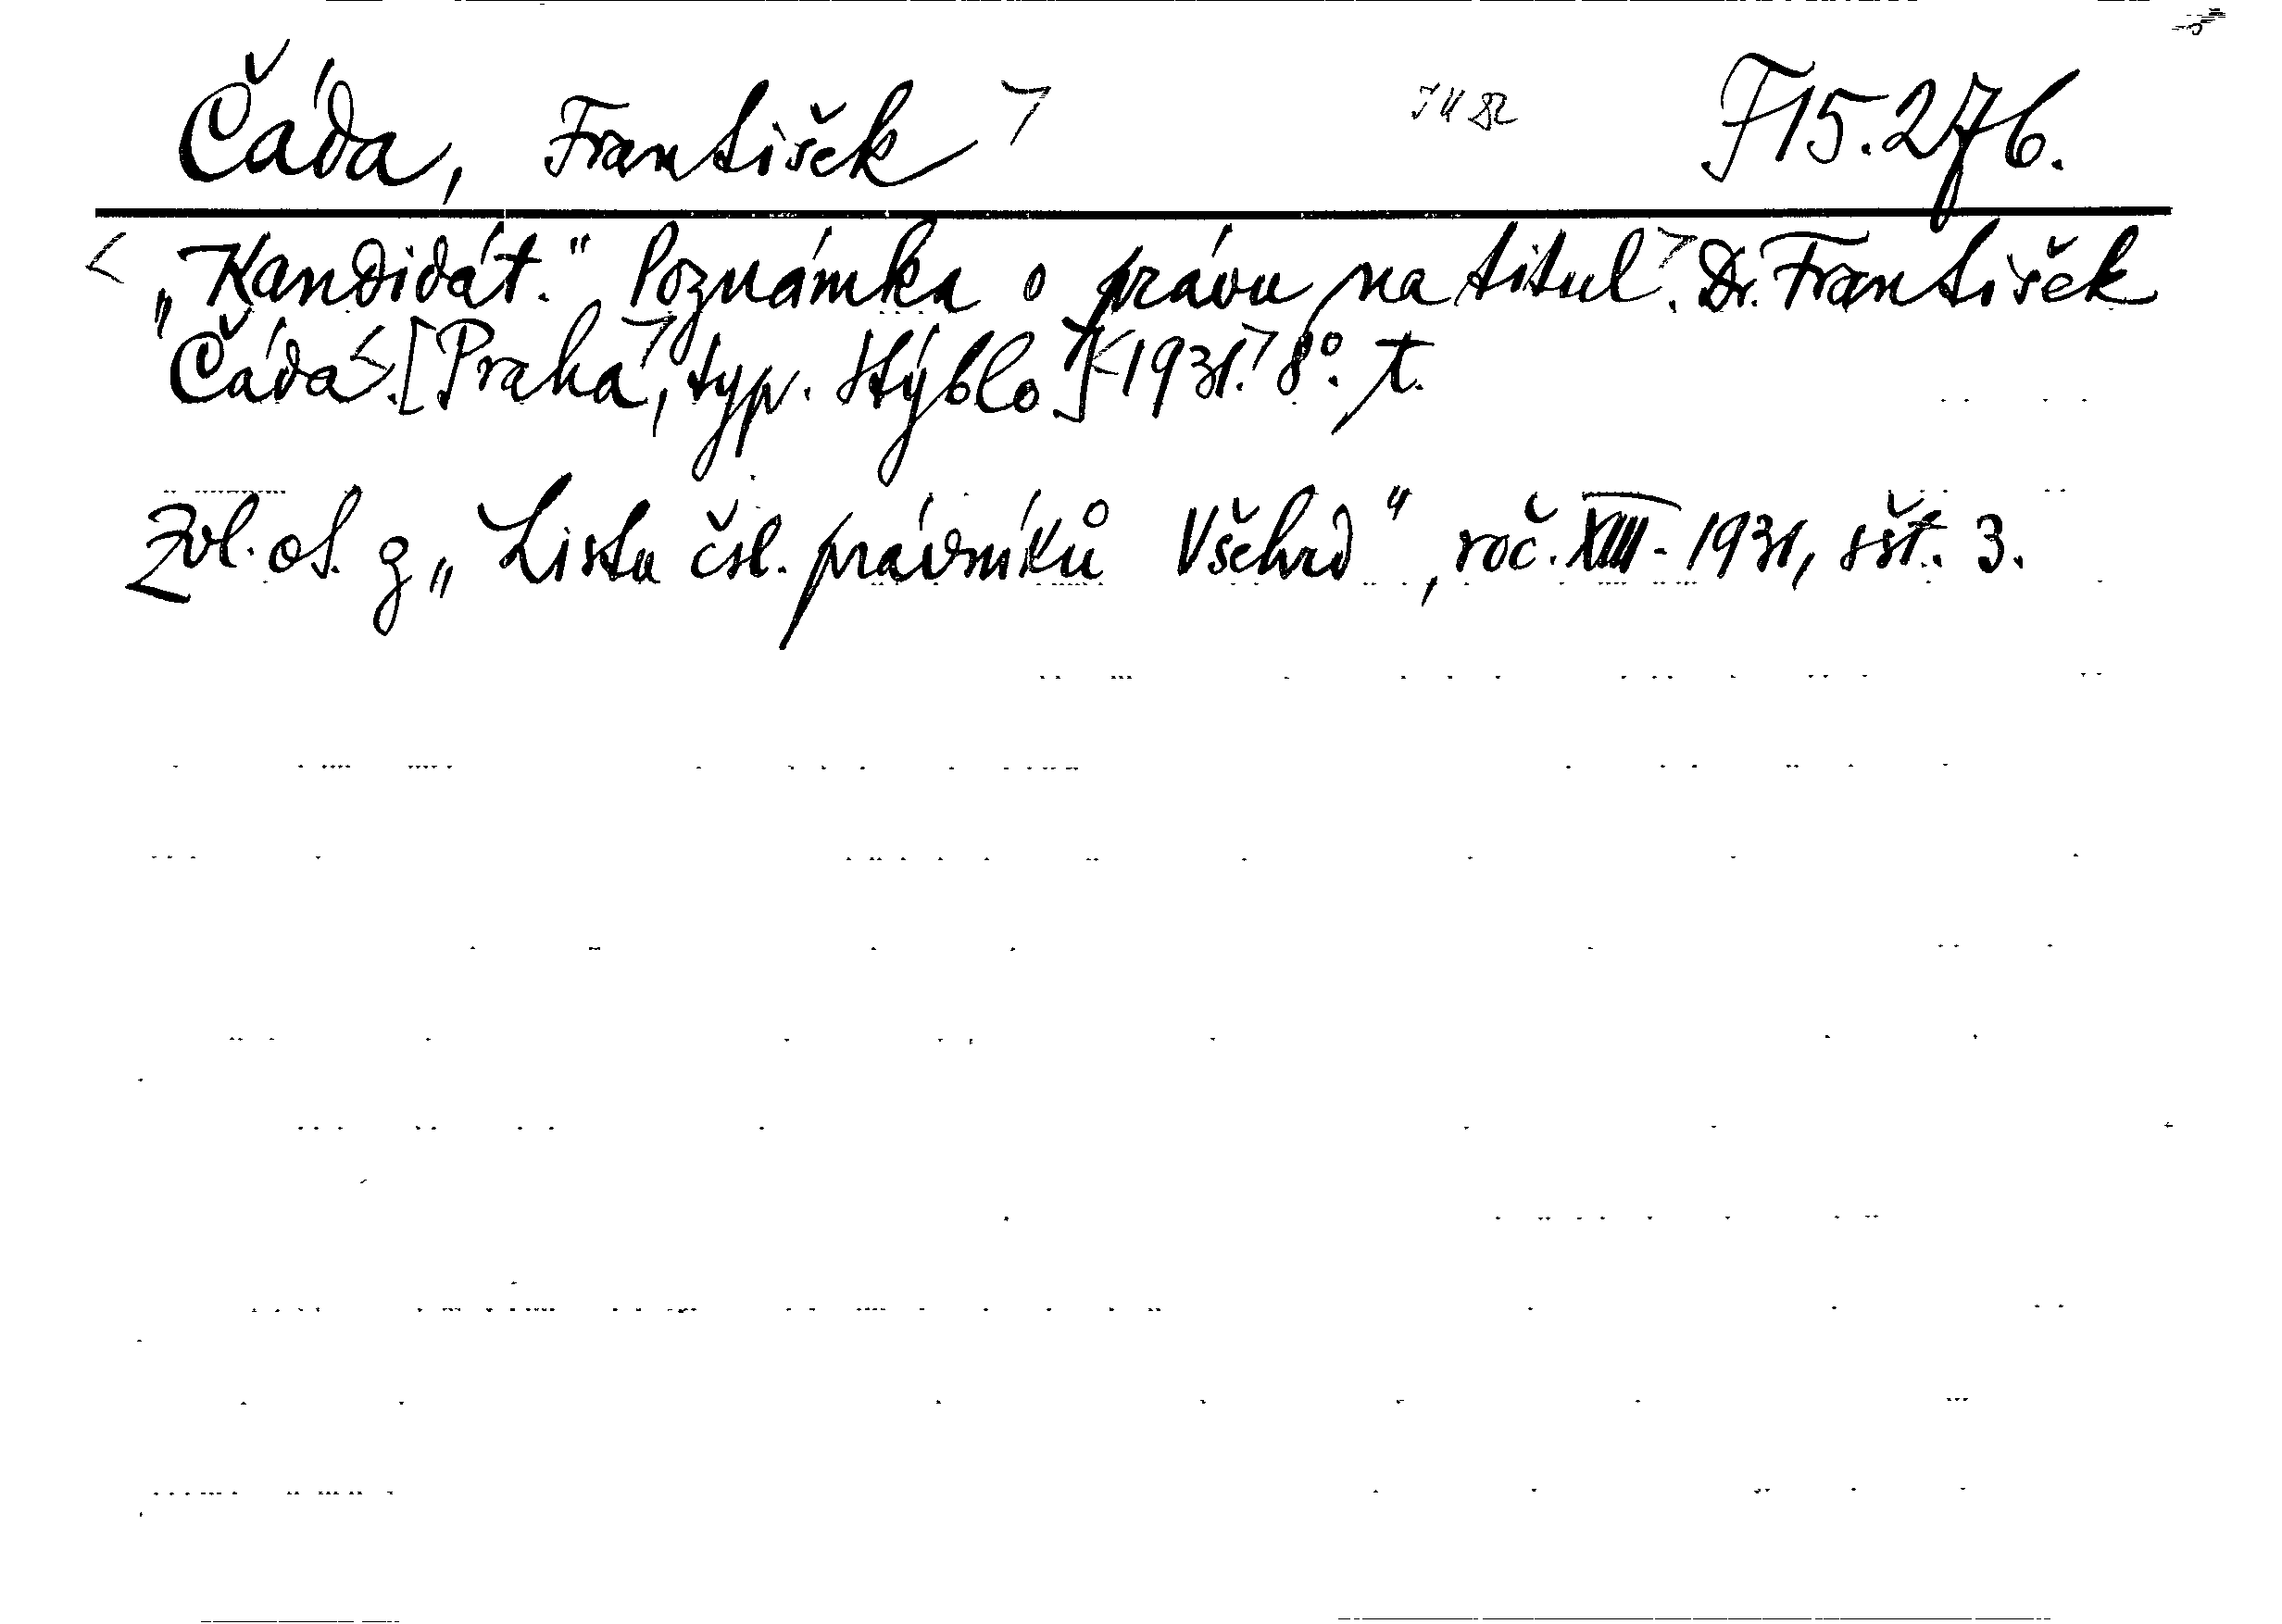 Čáda, František F 15.276.
„Kandidát." Poznámka o právu na titul. Dr. František
Čáda. [Praha, typ. Hýblo] 1931. 8°. t.
Zvl. ot. z „Listu čsl. právníků Všehrd", roč. XIII - 1931, sšt. 3.